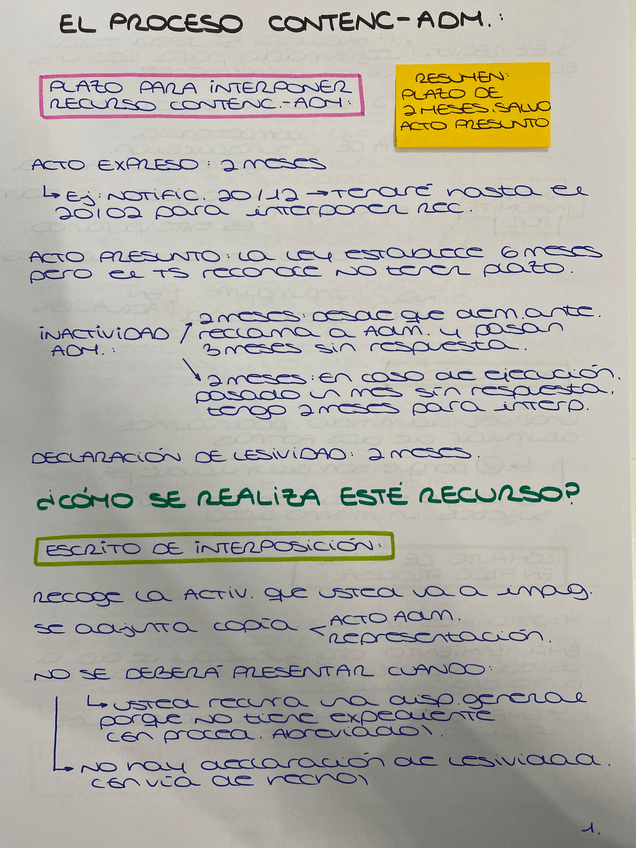 EL PROCESO CONTENC-ADM.:
PLAZO PARA INTERPONER
RECURSO CONTENC.-ADM:
RESUMEN:
PLAZO DE
2 MESES. SALVO
ACTO PRESUNTO
ACTO EXPRESO: 2 meses
↳ Ej: NOTIFIC. 20/12 → Tendré hasta el
20/02 para interponer REC.
ACTO PRESUNTO: LA LEY ESTABLECE 6 meses
pero el TS reconoce NO tener plazo.
INACTIVIDAD
ADM.:
2 meses: DESDE que dem.ante.
reclama a ADM. y pasan
3 meses sin respuesta.
2 meses: En caso de ejecución.
pasado un mes sin respuesta.
tengo 2 meses para interp.
DECLARACIÓN DE LESIVIDAD: 2 meses.
¿CÓMO SE REALIZA ESTÉ RECURSO?
ESCRITO DE INTERPOSICIÓN:
RECOGE LA ACTIV. que usted va a impug.
se adjunta copia < ACTO ADM.
Representación.
NO SE DEBERÁ PRESENTAR CUANDO:
↳ usted recurra una disp. general
porque NO tiene expediente
(en proced. Abreviado).
↳ NO hay declaración de lesividad.
(en vía de hecho)
1.